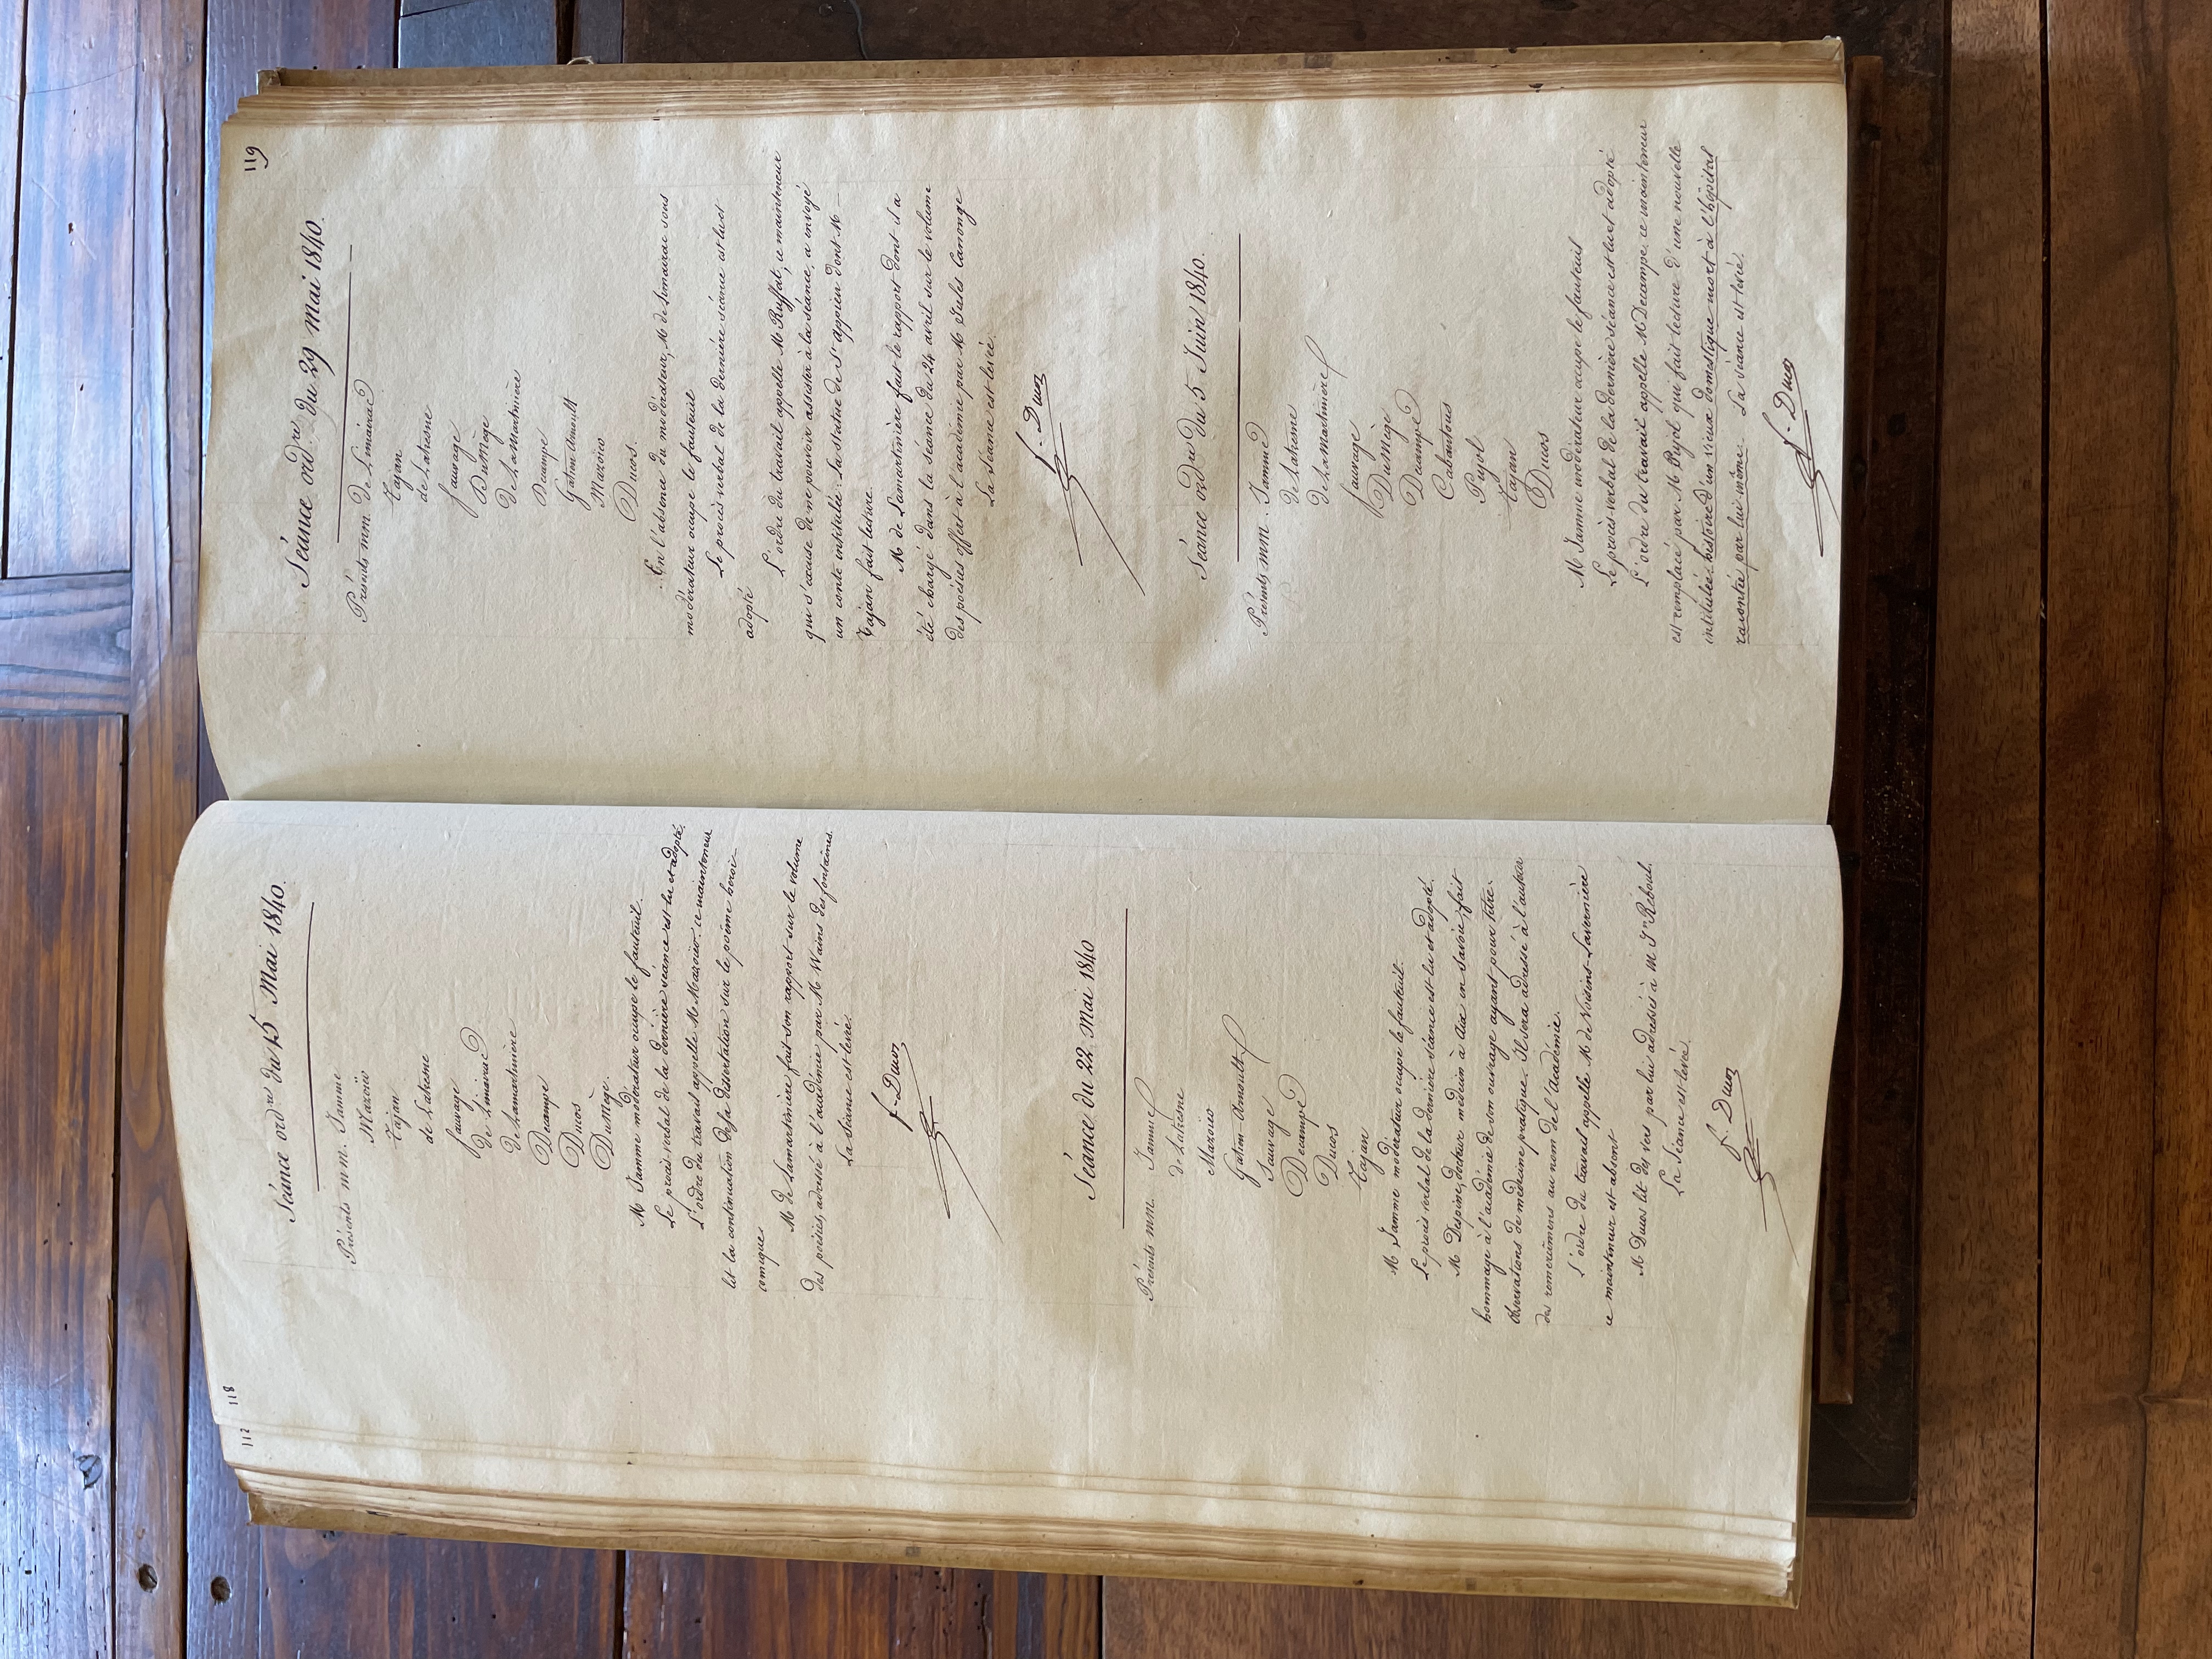 112
118
Séance ord.re du 15 Mai 1840.
Présents mm. Jamme
Mazoïo
Tajan
de Latresne
Sauvage
de Limairac
de Lamartinière
Decampe
Ducos
DuMège.
M Jamme modérateur occupe le fauteuil.
Le procès-verbal de la dernière séance est lu et adopté.
L'ordre du travail appelle M Mazoïo. ce mainteneur
lit la continuation de la dissertation sur le poème heroï-
comique
M de Lamartinière fait son rapport sur le volume
des poésies, adressé à l'académie par M Wains des fontaines.
La Séance est levée.
f. Ducos
Séance du 22 Mai 1840
Présents mm. Jamme
de Latresne
Mazoïo
Gatien-Arnoult
Sauvage
Decampe
Ducos
Tajan
M Jamme modérateur occupe le fauteuil.
Le procès verbal de la dernière séance est lu et adopté.
M Despine, docteur médecin à Aix en Savoie, fait
hommage à l'académie de son ouvrage ayant pour titre.
Observations de médecine pratique. Il sera adressé à l'auteur
des remercîmens au nom de l'Académie.
L'ordre du travail appelle M de Voisins-Lavernière
ce mainteneur est absent
M Ducos lit des vers par lui adressés à m Jn Reboul.
La Séance est levée.
f. Ducos
119
Séance ord.re du 29 mai 1840.
Présents mm. de Limairac
Tajan
de Latresne
Sauvage
DuMège
de LaMartinière
Decampe
Gatien Arnoult
Mazoïo
Ducos.
En l'absence du modérateur, M de Limairac sous
modérateur occupe le fauteuil
Le procès verbal de la dernière séance est lu et
adopté
L'ordre du travail appelle M Ruffat, ce mainteneur
qui s'excuse de ne pouvoir assister à la séance, a envoyé
un conte intitulé: La statue de St appien dont M
Tajan fait lecture.
M de Lamartinière fait le rapport dont il a
été chargé dans la séance du 24 avril sur le volume
des poésies offert à l'académie par M Jules Canonge
La Séance est levée.
f. Ducos
Séance ord.re du 5 Juin 1840.
Présents mm. Jamme
de Latresne
de Lamartinière
Sauvage
DuMège
Decampe
Cabantous
Pujol
Tajan
Ducos
M Jamme modérateur occupe le fauteuil
Le procès-verbal de la dernière séance est lu et adopté
L'ordre du travail appelle M Decampe. ce mainteneur
est remplacé par M Pujol qui fait lecture d'une nouvelle
intitulée: histoire d'un vieux domestique mort à l'hôpital
racontée par lui même. La Séance est levée.
f. Ducos